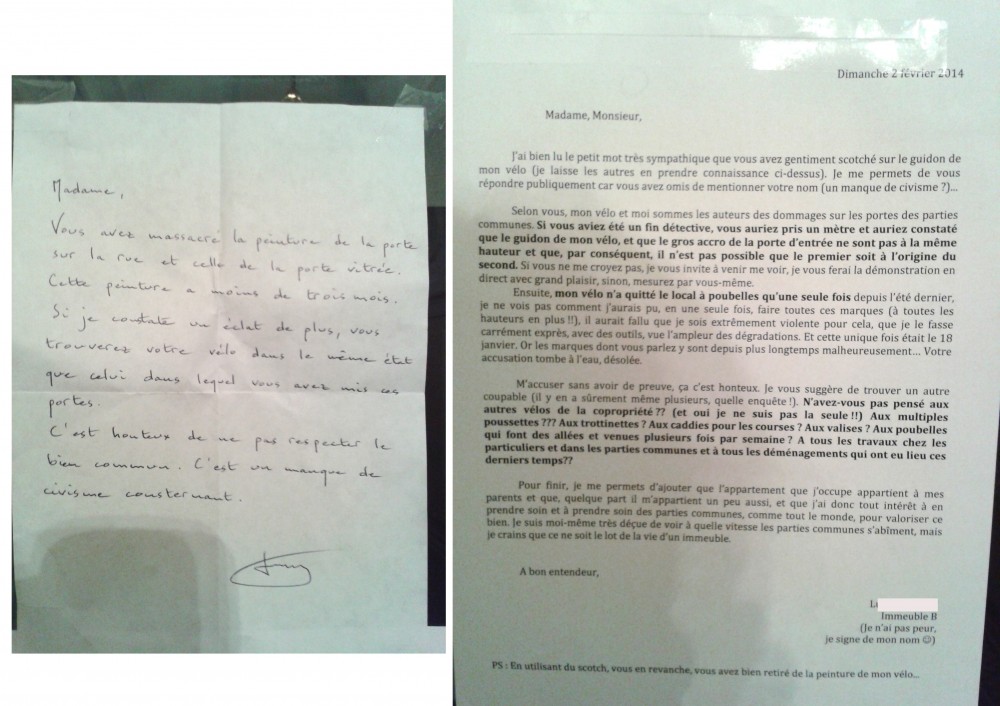 Madame,
Vous avez massacré la peinture de la porte
sur la rue et celle de la porte vitrée.
Cette peinture a moins de trois mois.
Si je constate un éclat de plus, vous
trouverez votre vélo dans le même état
que celui dans lequel vous avez mis ces
portes.
C'est honteux de ne pas respecter le
bien commun. C'est un manque de
civisme consternant.
Dimanche 2 février 2014
Madame, Monsieur,
J'ai bien lu le petit mot très sympathique que vous avez gentiment scotché sur le guidon de
mon vélo (je laisse les autres en prendre connaissance ci-dessus). Je me permets de vous
répondre publiquement car vous avez omis de mentionner votre nom (un manque de civisme ?)...
Selon vous, mon vélo et moi sommes les auteurs des dommages sur les portes des parties
communes. Si vous aviez été un fin détective, vous auriez pris un mètre et auriez constaté
que le guidon de mon vélo, et que le gros accro de la porte d'entrée ne sont pas à la même
hauteur et que, par conséquent, il n'est pas possible que le premier soit à l'origine du
second. Si vous ne me croyez pas, je vous invite à venir me voir, je vous ferai la démonstration en
direct avec grand plaisir, sinon, mesurez par vous-même.
Ensuite, mon vélo n'a quitté le local à poubelles qu'une seule fois depuis l'été dernier,
je ne vois pas comment j'aurais pu, en une seule fois, faire toutes ces marques (à toutes les
hauteurs en plus !!), il aurait fallu que je sois extrêmement violente pour cela, que je le fasse
carrément exprès, avec des outils, vue l'ampleur des dégradations. Et cette unique fois était le 18
janvier. Or les marques dont vous parlez y sont depuis plus longtemps malheureusement... Votre
accusation tombe à l'eau, désolée.
M'accuser sans avoir de preuve, ça c'est honteux. Je vous suggère de trouver un autre
coupable (il y en a sûrement même plusieurs, quelle enquête !). N'avez-vous pas pensé aux
autres vélos de la copropriété ?? (et oui je ne suis pas la seule !!) Aux multiples
poussettes ??? Aux trottinettes ? Aux caddies pour les courses ? Aux valises ? Aux poubelles
qui font des allées et venues plusieurs fois par semaine ? A tous les travaux chez les
particuliers et dans les parties communes et à tous les déménagements qui ont eu lieu ces
derniers temps??
Pour finir, je me permets d'ajouter que l'appartement que j'occupe appartient à mes
parents et que, quelque part il m'appartient un peu aussi, et que j'ai donc tout intérêt à en
prendre soin et à prendre soin des parties communes, comme tout le monde, pour valoriser ce
bien. Je suis moi-même très déçue de voir à quelle vitesse les parties communes s'abîment, mais
je crains que ce ne soit le lot de la vie d'un immeuble.
A bon entendeur,
Immeuble B
(Je n'ai pas peur,
je signe de mon nom ☺)
PS : En utilisant du scotch, vous en revanche, vous avez bien retiré de la peinture de mon vélo...